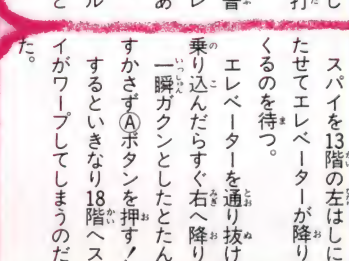 スパイを13階の左はしに
たせてエレベーターが降り
くるのを待つ。
エレベーターを通り抜け
乗り込んだらすぐ右へ降り
一瞬ガクンとしたとたん
すかさずⒶボタンを押す！
するといきなり18階へス
イがワープしてしまうのだ
た。